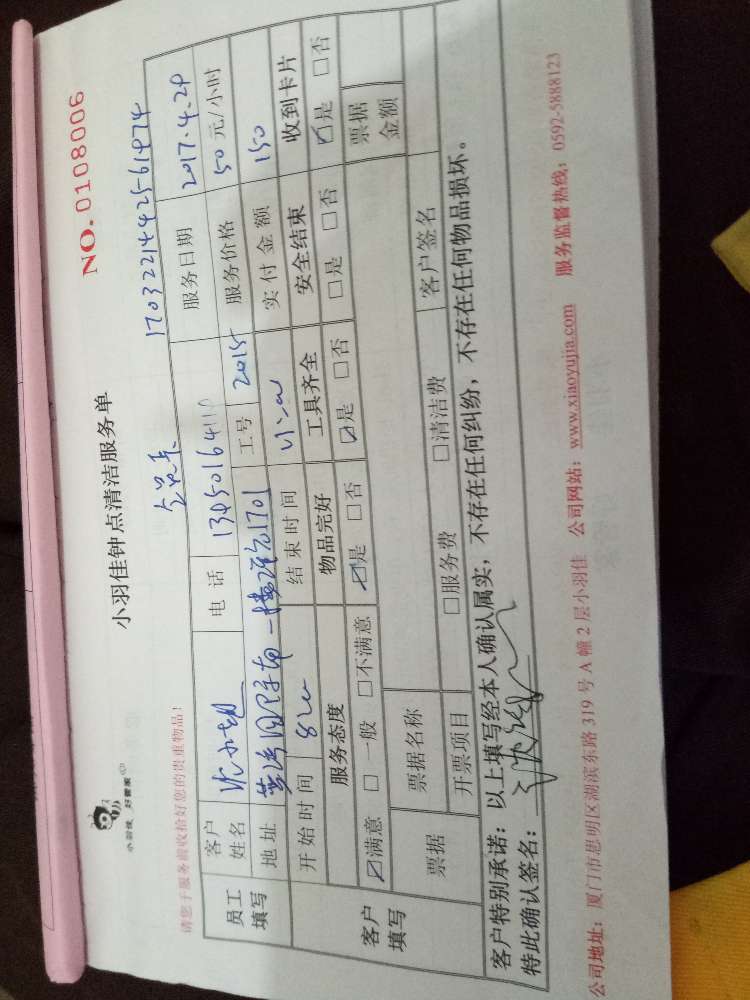 小羽佳 好管家
小羽佳钟点清洁服务单
NO. 0108006
请您于服务前收拾好您的贵重物品!
1703221442561974
员工填写
客户姓名 电话 13450164110 服务日期 2017.4.29
地址 1701 工号 2015 服务价格 50元/小时
开始时间 8:00 结束时间 11:00 实付金额 150
客户填写
服务态度 物品完好 工具齐全 安全结束 收到卡片
☑满意 □一般 □不满意 ☑是 □否 ☑是 □否 □是 □否 ☑是 □否
票据 票据名称 票据金额
开票项目 □服务费 □清洁费 客户签名
客户特别承诺:以上填写经本人确认属实,不存在任何纠纷,不存在任何物品损坏。
特此确认签名:
公司地址:厦门市思明区湖滨东路319号A幢2层小羽佳 公司网站:www.xiaoyujia.com 服务监督热线:0592-5888123